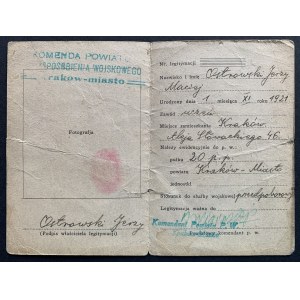 KOMENDA POWIAT
PRZYSPOSOBIENIA WOJSKOWEGO
Kraków-miasto
Fotografia
Ostrowski Jerzy
(Podpis właściciela legitymacji)
Nr. legitymacji
Nazwisko i imię Ostrowski Jerzy
Maciej
Urodzony dnia 1 miesiąca XI roku 1921
Zawód uczeń
Miejsce zamieszkania Kraków
Aleja Słowackiego 46.
Należy ewidencyjnie do p. w.
pułku 20 p.p.
powiatu Kraków-Miasto
jednostki
Stosunek do służby wojskowej przedpoborowy
Legitymacja ważna do
Komendant Powiatu P. W.
Powiatowy komendant p. w.